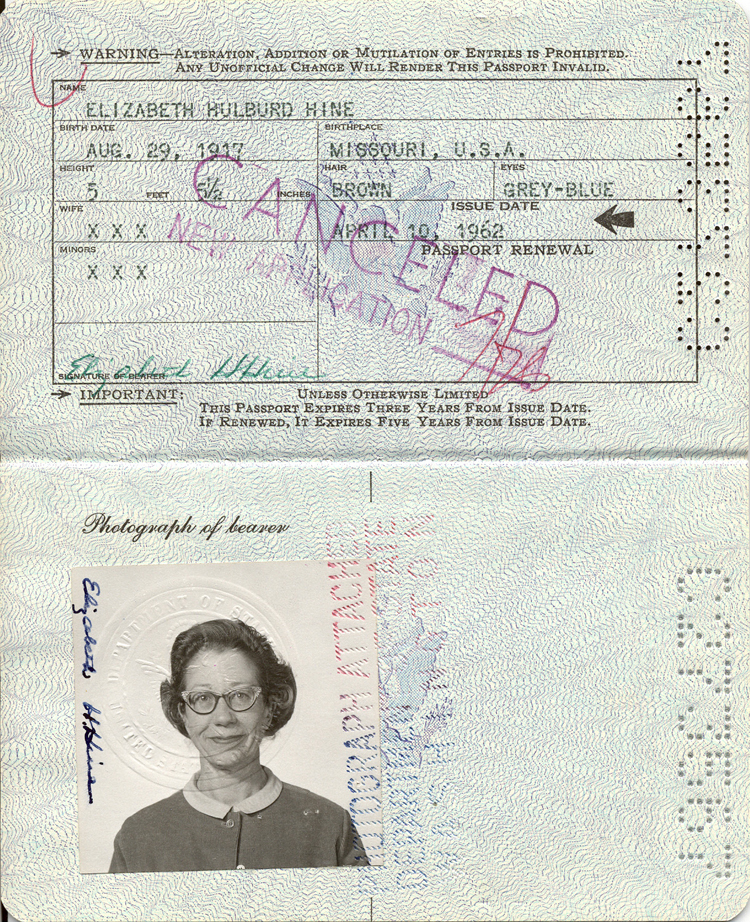 WARNING—ALTERATION, ADDITION OR MUTILATION OF ENTRIES IS PROHIBITED.
ANY UNOFFICIAL CHANGE WILL RENDER THIS PASSPORT INVALID.
NAME
ELIZABETH HULBURD HINE
BIRTH DATE BIRTHPLACE
AUG. 29, 1917 MISSOURI, U.S.A.
HEIGHT HAIR EYES
5 FEET 5½ INCHES BROWN GREY-BLUE
WIFE ISSUE DATE
X X X APRIL 10, 1962
MINORS PASSPORT RENEWAL
X X X
CANCELED
NEW APPLICATION
SIGNATURE OF BEARER
Elizabeth H Hine
IMPORTANT: UNLESS OTHERWISE LIMITED
THIS PASSPORT EXPIRES THREE YEARS FROM ISSUE DATE.
IF RENEWED, IT EXPIRES FIVE YEARS FROM ISSUE DATE.
Photograph of bearer
Elizabeth H. Hine
PHOTOGRAPH ATTACHED